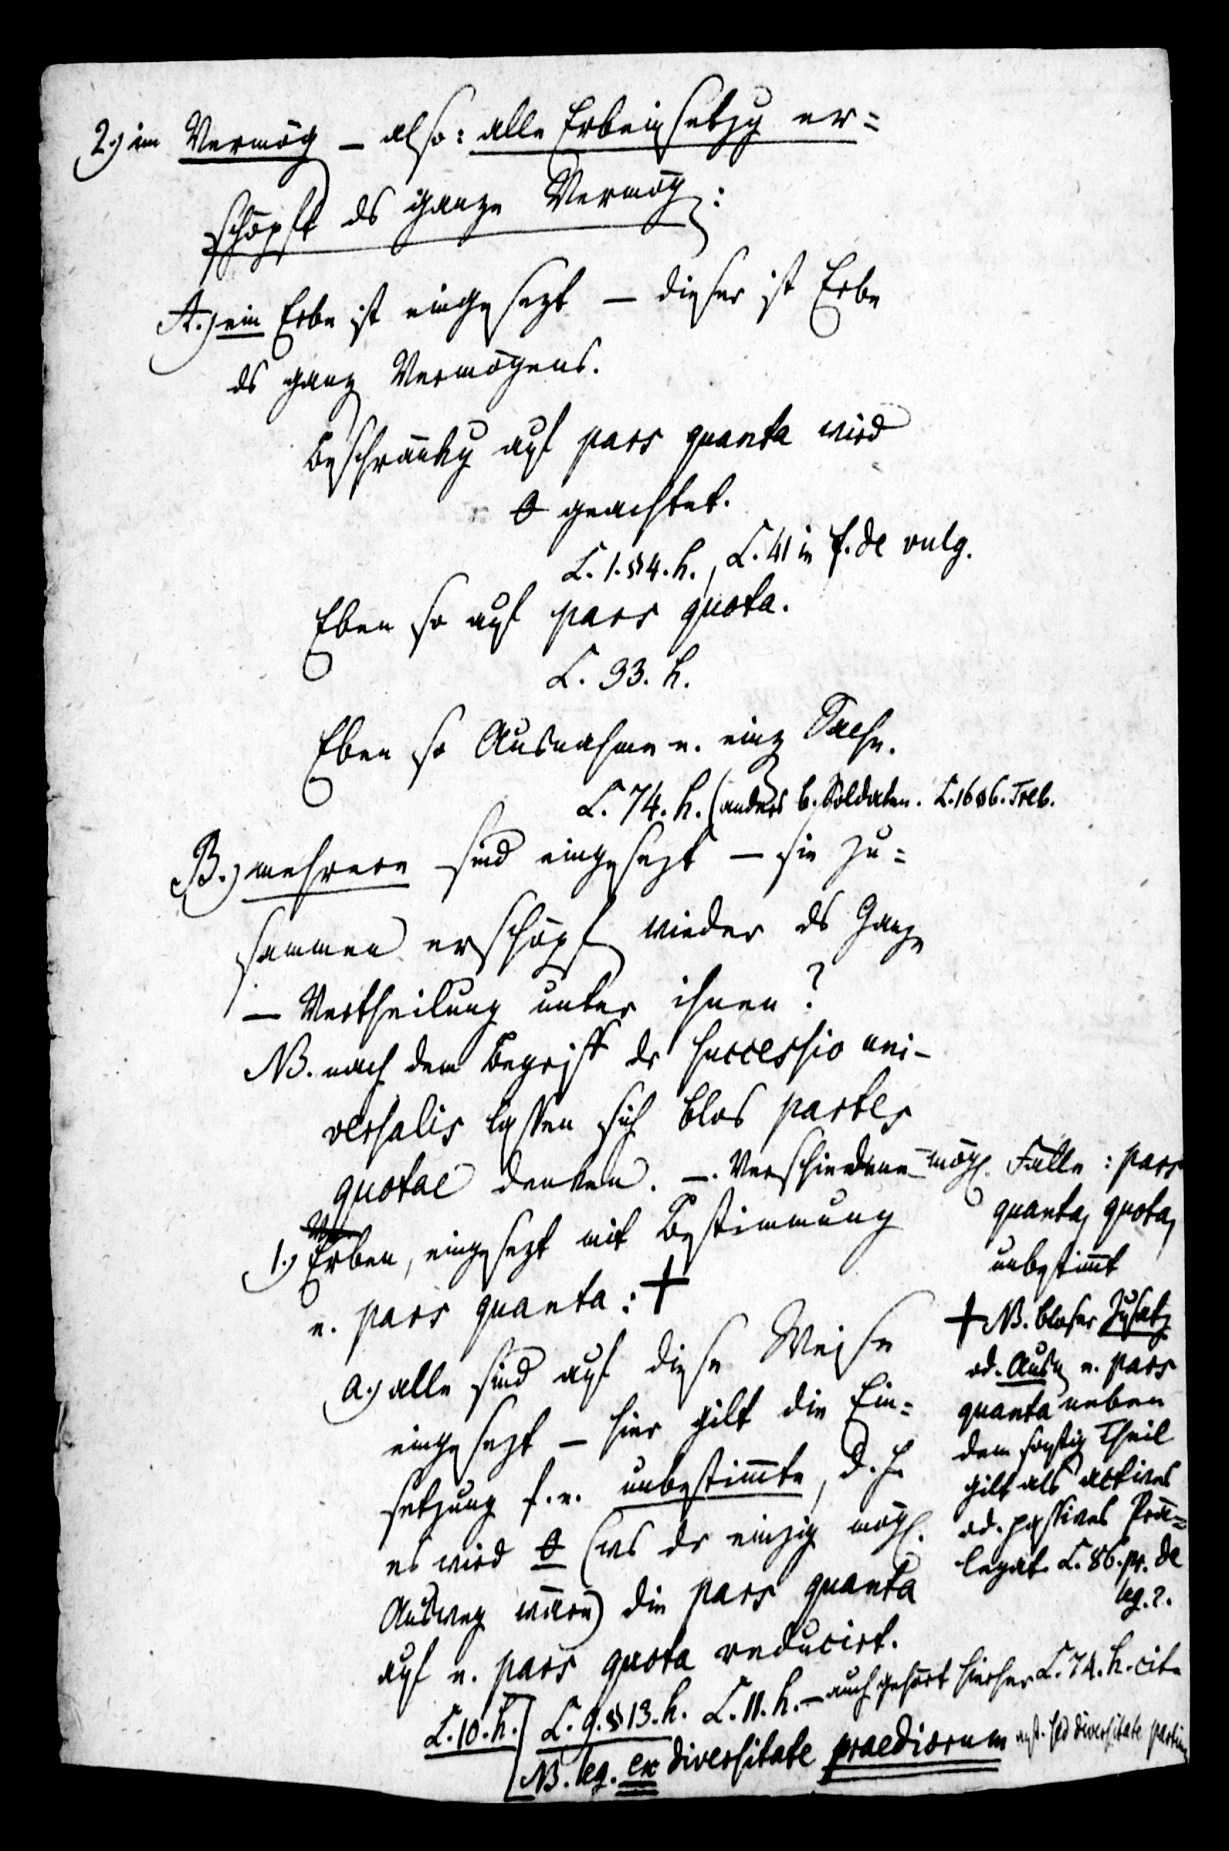 2.) im Vermög – also: alle Erbeinsetzg er=
schöpft ds ganze Vermög:
A.) ein Erbe ist eingesezt – dieser ist Erbe
ds ganz Vermögens.
Beschränkg auf pars quanta wird
0 geachtet.
L. 1. §4. h., L. 41 in f. de vulg.
Eben so auf pars quota.
L. 33. h.
Eben so Ausnahme e. einz Sache.
L. 74. h. (anders b. Soldaten. L. 16 §6. Test.
B.) mehrere sind eingesezt – sie zu=
sammen erschöpf wieder ds Ganze
– Vertheilung unter ihnen?
NB. nach dem Begriff dr successio uni-
versalis lassen sich blos partes
quotae denken. –. Verschiedene mögl. Fälle: pars
quanta, quota,
unbestimmt
1.) Erben, eingesezt mit Bestimmung
e. pars quanta: +
a.) alle sind auf diese Weise
eingesezt – hier gilt die Ein=
setzung f. e. unbestimmte, d. h.
es wird 0 (ws dr einzig mögl.
Ausweg wäre) die pars quanta
auf e. pars quota reducirt.
+ NB. bloser Zusatz
od. Ausn e. pars
quanta neben
dem sonstig Theil
gilt als actives
od. passives Prä=
legat. L. 86. pr. de
leg. 2.
L. 10. h. L. 9. §13. h. L. 11. h. – auch gehört hierher L. 74. h. cit.
NB. leg. ex diversitate praediorum anst. sed diversitate partium